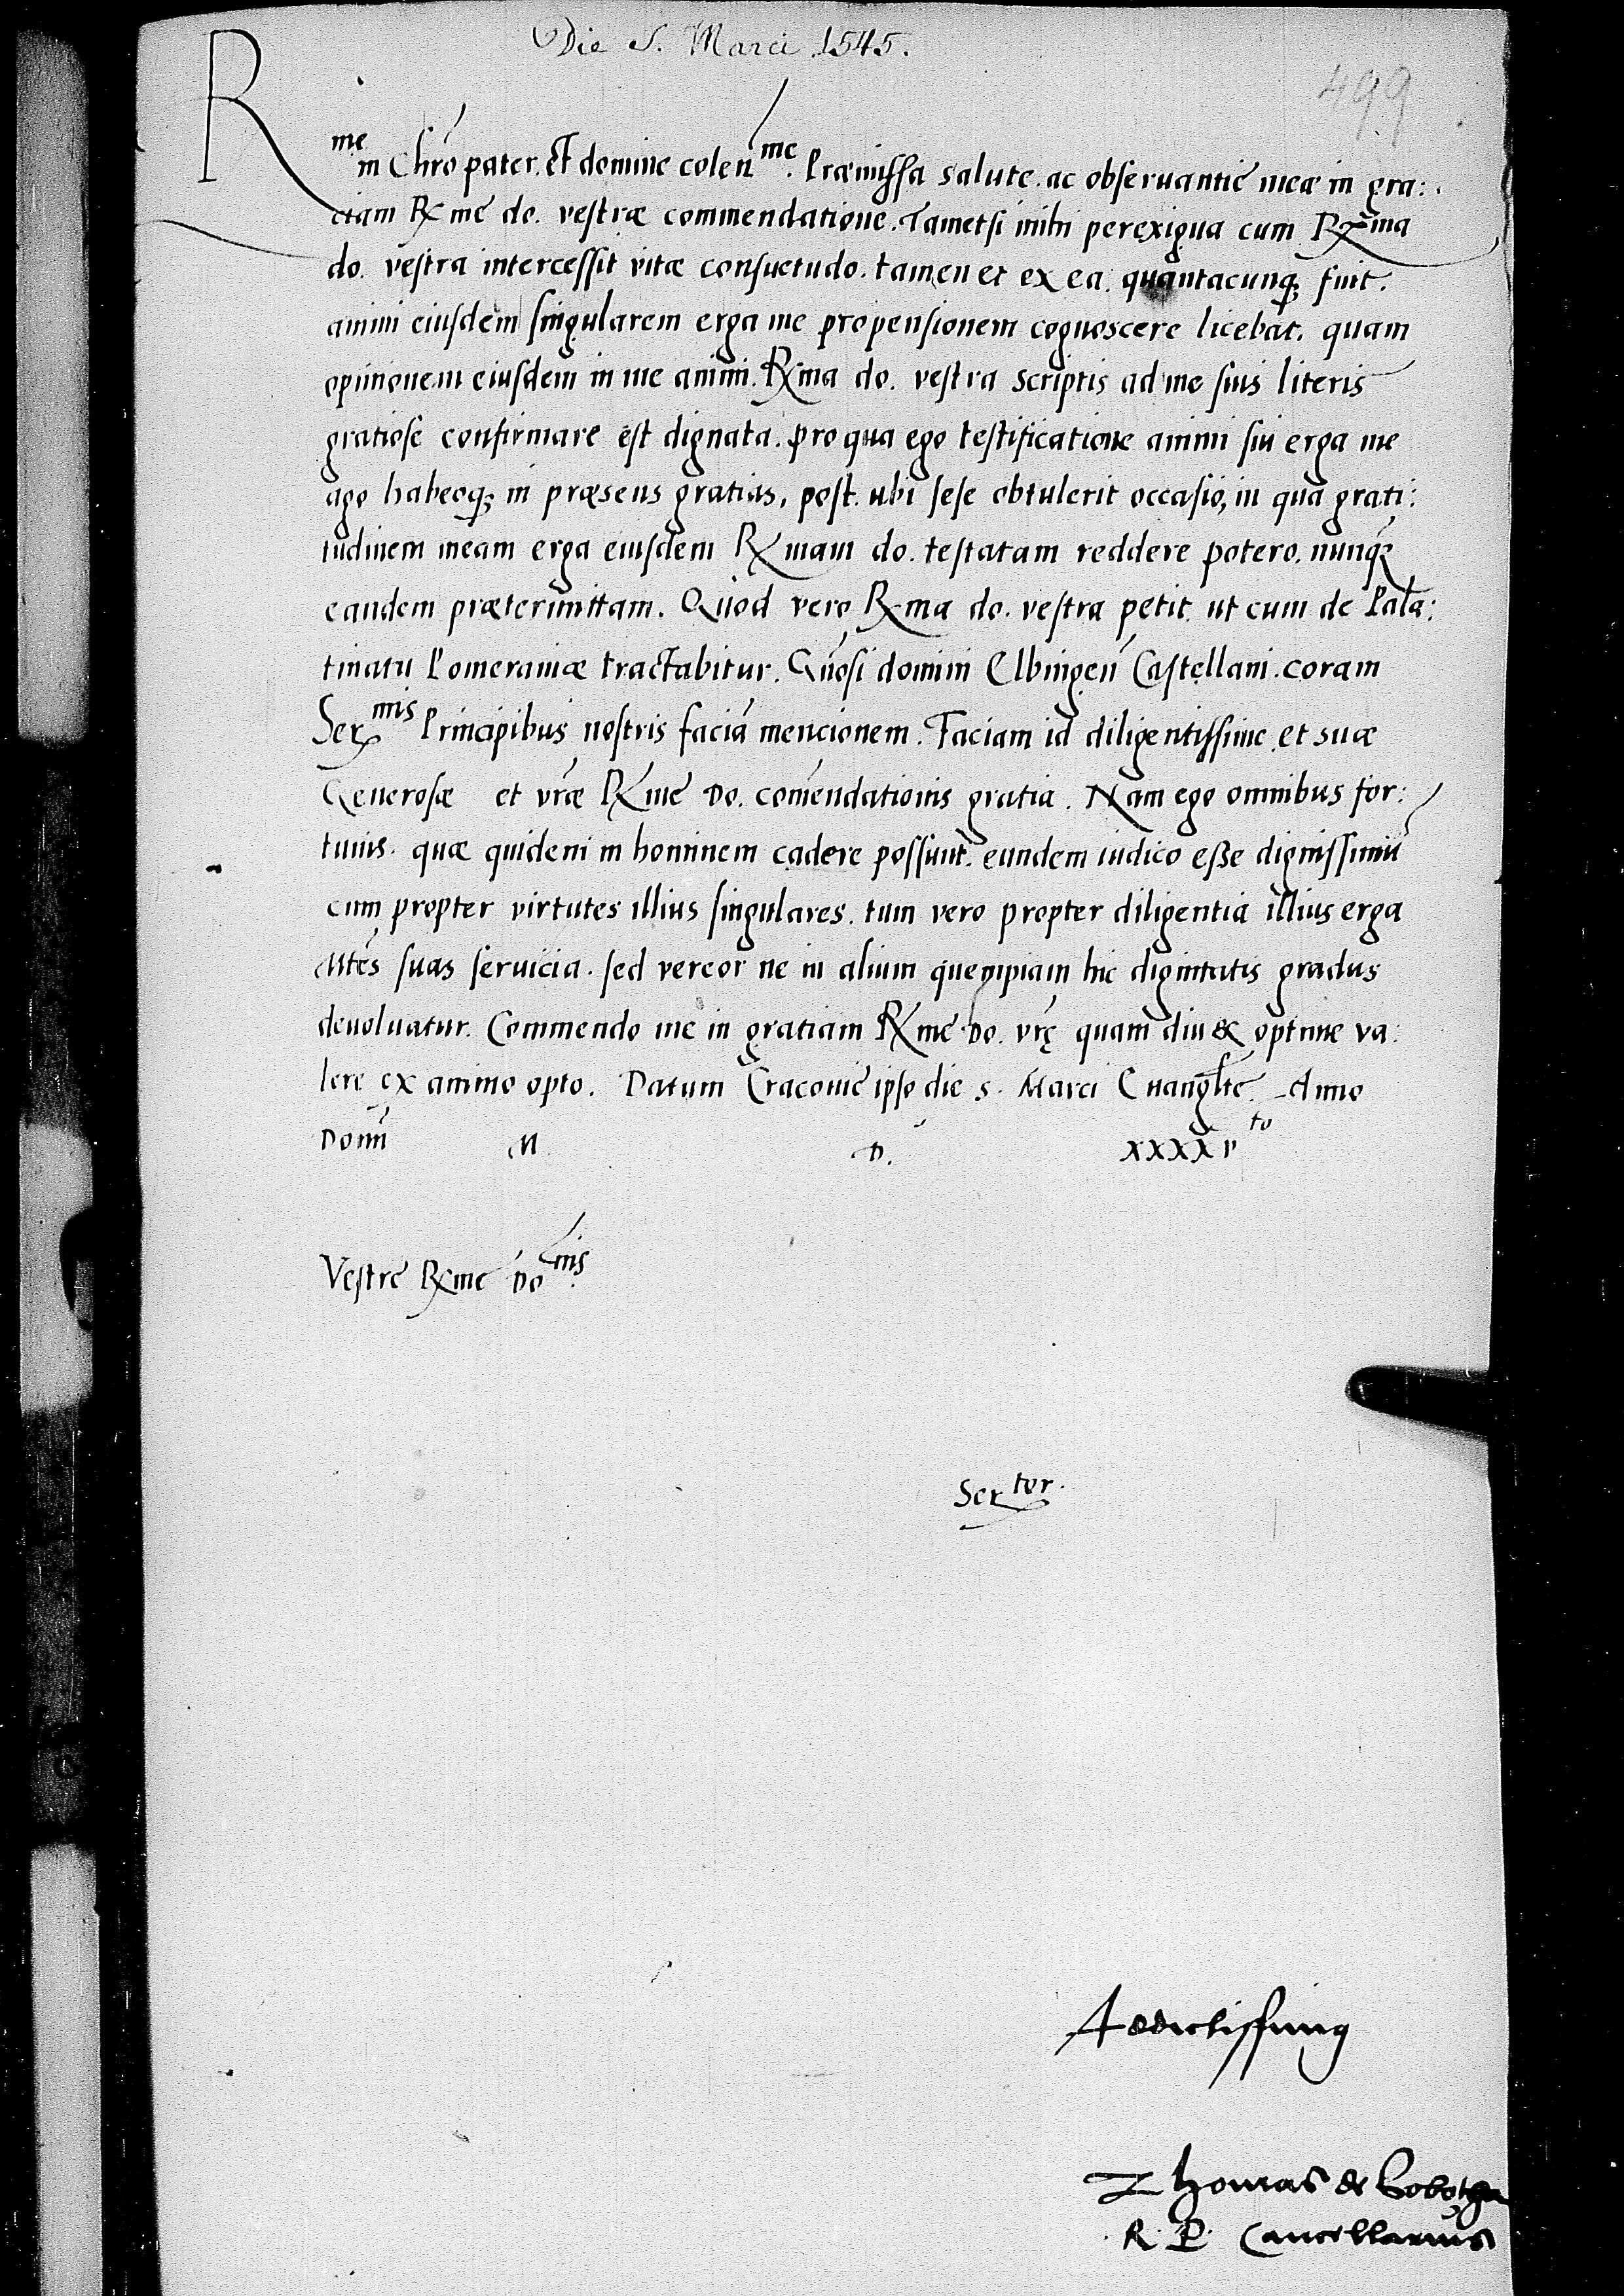 Die S. Marci 1545.
499
Rme in Chro pater. Et domine colenme. Præmissa salute. ac obseruantie meæ in gra:
ciam Rme do. vestræ commendatione. Tametsi mihi perexigua cum Rma
do. vestra intercessit vitæ consuetudo. tamen et ex ea. quantacunq; fuit.
animi eiusdem singularem erga me propensionem cognoscere licebat. quam
opinionem eiusdem in me animi. Rma do. vestra scriptis ad me suis literis
gratiose confirmare est dignata. pro qua ego testificatione animi sui erga me
ago habeoq; in præsens gratias, post. ubi sese obtulerit occasio, in qua grati:
tudinem meam erga eiusdem Rmam do. testatam reddere potero. nunq
eandem prætermittam. Quod vero Rma do. vestra petit. ut cum de Pala:
tinatu Pomeraniæ tractabitur. Gnosi domini Elbingen Castellani. coram
Sermis Principibus nostris faciā mencionem. Faciam id diligentissime, et suæ
Generosæ et vræ Rme Do. comendationis gratia. Nam ego omnibus for:
tunis. quæ quidem in hominem cadere possunt. eundem iudico esse dignissimū
cum propter virtutes illius singulares. tum vero propter diligentiā illius erga
Mtes suas seruicia. sed vereor ne in alium quempiam hic dignitatis gradus
deuoluatur. Commendo me in gratiam Rme Do. vrę quam diu & optime va:
lere ex animo opto. Datum Cracovie ipso die S. Marci Euanglte. Anno
Domi M. D. XXXXVto
Vestre Rme Donis.
Sertor.
Addictissimus
Thomas de Sobotha
R. P. Cancellarius